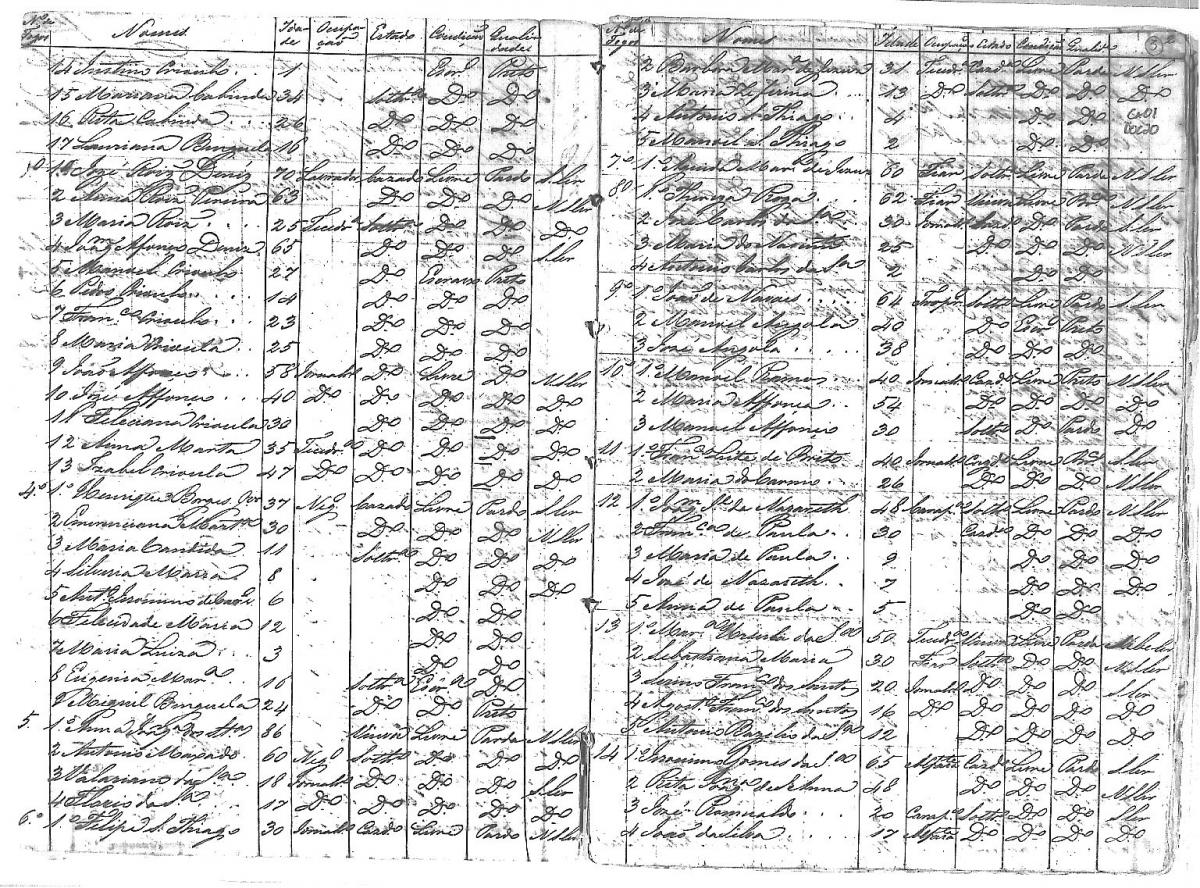 Nº de Fogos Nomes Idade Ocupação Estado Condição Qualidades
14 Justino Crioulo 1 Escr.º Preto
15 Marianna Cabinda 34 Soltª Dº Dº
16 Rita Cabinda 26 Dº Dº Dº
17 Lauriana Benguela 16 Dº Dº Dº
1º José Roiz Deniz 70 Lavrador Cazado Livre Pardo S. ler
2 Anna Roiz Pereira 63 Dº Dº Dº N. ler
3 Maria Roiz 25 Tecedª Soltª Dº Dº Dº
4 Affonço Deniz 65 Dº Dº Dº S. ler
5 Manuel Crioulo 27 Dº Escravo Preto
6 Pedro Crioulo 14 Dº Dº Dº
7 Framcº Crioulo 23 Dº Dº Dº
8 Maria Crioula 25 Dº Dº Dº
9 João Affonço 58 Jornalrº Dº Livre Dº N. ler
10 José Affonço 40 Dº Dº Dº Dº Dº
11 Feleciana Crioula 30 Dº Dº Dº Dº
12 Anna Marta 35 Tecedrª Dº Dº Dº Dº
13 Izabel Crioula 47 Dº Dº Dº Dº Dº
4º 1º Henrique Borges 37 Neg. Cazado Livre Pardo S. ler
2 30 Dº Dº Dº N. ler
3 Maria Candida 11 Soltª Dº Dº Dº
4 Maria 8 Dº Dº Dº
5 Antº Jeronimo 6 Dº Dº
6 Felicidade Maria 12 Dº Dº
7 Maria Luiza 3 Dº Dº
8 Eugenia Marª 16 Soltª Escrª Dº
9 Miguel Benguela 24 Dº Dº Preto
5. 1º Anna 86 Viuva Livre Parda N. ler
2 Antonio Maxado 60 Neg. Soltº Dº Dº Dº
3 Valeriano da Sª 18 Jornalrº Dº Dº Dº S. ler
4 Floris da Sª 17 Dº Dº Dº Dº Dº
6.º 1º Felipe S. Thiago 30 Jornalrº Cazdo Livre Pardo N. ler
Nº de Fogos Nomes Idade Ocupação Estado Condição Qualides 3
2 Barbara Marª de Jezus 31 Tecedrª Cazdª Livre Parda N. ler
3 Maria Zeferina 13 Dº Soltª Dº Dº Dº
4 Antonio S. Thiago 4 Dº Dº
5 Manoel S. Thiago 2 Dº Dº
7º 1º Marª de Jezus 60 Fian. Soltª Livre Parda N. ler
8º 1º Thereza Roza 62 Fian. Viuva Livre N. ler
2 José Carlos da Sª 30 Jornalrº Cazdº Dº Pardo S. ler
3 Maria do Nascimto 25 Dº Dº Dº N. ler
4 Antonio Carlos da Sª 2 Dº Dº
9º 1º João de Novais 64 Soltº Livre Pardo S. ler
2 Manoel Angola 40 Dº Escrº Preto
3 José Angola 38 Dº Dº Dº
10º 1º Manoel Ramos 40 Jornalrº Cazdº Livre Preto N. ler
2 Maria Affonça 54 Dº Dº Dº Dº
3 Manuel Affonço 30 Soltº Dº Pardo Dº
11 1º Framcº Leite de Brito 40 Jornalrº Cazdº Livre S. ler
2 Maria do Carmo 26 Dº Dº Dº N. ler
12 1º de Nazareth 48 Carapº Soltº Livre Pardo N. ler
2 Framcª de Paula 30 Cazdª Dº Dº Dº
3 Maria de Paula 9 Dº Dº Dº
4 José de Nazareth 7 Dº Dº Dº
5 Anna de Paula 5 Dº Dº
13 1º Marª Ursula da Sª 50 Tecedrª Viuva Livre Parda
2 Sebastiana Maria 30 Soltª Dº Dº N. ler
3 Framcº dos Santos 20 Jornalrº Dº Dº Dº S. ler
4 Agostº Framcº dos Santos 16 Dº Dº Dº Dº Dº
5 Antonio Bazilio da Sª 12 Dº Dº Dº Dº
14 1º Gomes da Sª 65 Alfate Cazdº Livre Pardo S. ler
2 Rita 48 Dº Dº Dº N. ler
3 José Romualdo 20 Carapº Soltº Dº Dº S. ler
4 João da Silva 17 Alfate Dº Dº Dº Dº